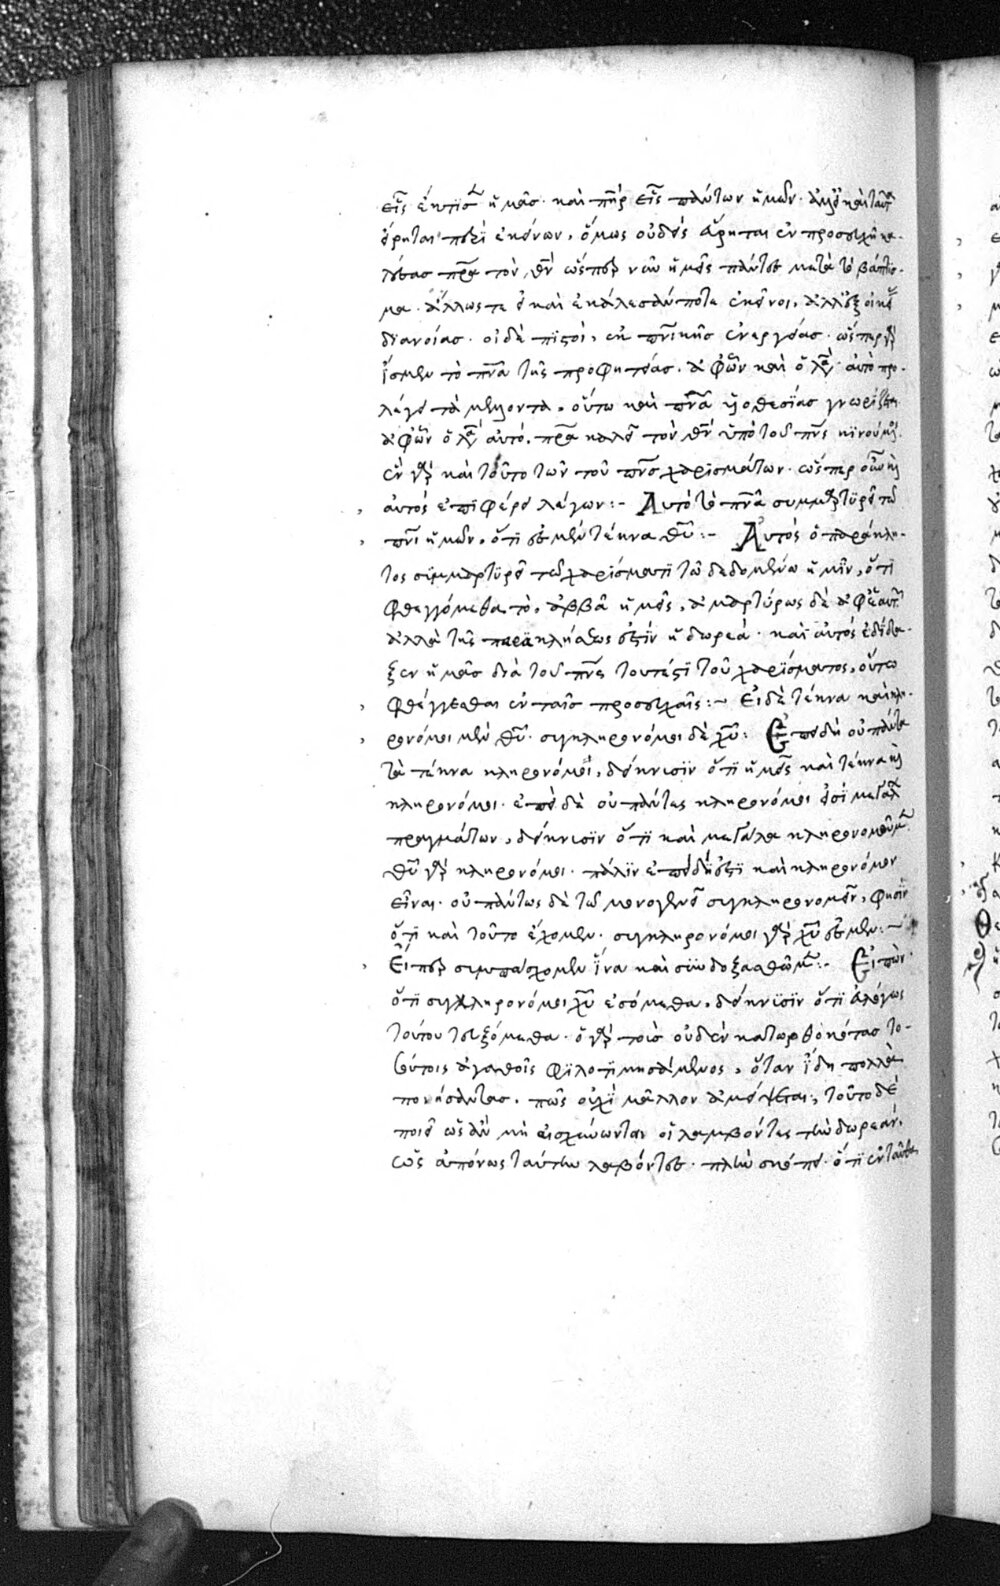 εἷς ἔκτισεν ἡμᾶς· καὶ πηρ εἷς πάντων ἡμῶν· ἀλλ' εἰ καὶ ταῦτα
εἴρηται περὶ ἐκείνων, ὅμως οὐδεὶς εὕρηται ἐν προσευχῇ κα-
λέσας πρα τὸν θν ὥσπερ νῦν ἡμεῖς πάντες μετὰ τὸ βάπτισ-
μα· ἄλλως τε εἰ καὶ ἐκάλεσάν ποτε ἐκεῖνοι, ἀλλ' ἐξ οἰκείας
διανοίας· οἱ δὲ πιστοὶ, ἐκ πνικῆς ἐνεργείας· ὥσπερ γὰρ
ἴσμεν τὸ πνα τῆς προφητείας· ἀφ' ὧν καὶ ὁ λαὸς αὐτὸ προ-
λέγει τὰ μέλλοντα, οὕτω καὶ πνα υἱοθεσίας γνωρίζεται
ἀφ' ὧν ὁ λαὸς αὐτὸ, πρα καλεῖ τὸν θν ὑπὸ τοῦ πνς κινούμενος·
ἓν γὰρ καὶ τοῦτο τῶν τοῦ πνς χαρισμάτων· ὥσπερ οὖν καὶ
αὐτὸς ἐπιφέρει λέγων:- Αὐτὸ τὸ πνα συμμαρτυρεῖ τῷ
πνι ἡμῶν, ὅτι ἐσμὲν τέκνα θυ:- Αὐτὸς ὁ παράκλη-
τος συμμαρτυρεῖ τῷ χαρίσματι τῷ δεδομένω ἡμῖν, ὅτι
φθεγγόμεθα τὸ, ἀββᾶ ἡμεῖς, ἀμαρτύρως δὲ ἀφ' ἑαυτῶν
ἀλλὰ τῆς παρακλήσεως ἐστὶν ἡ δωρεά· καὶ αὐτὸς ἐδίδα-
ξεν ἡμᾶς διὰ τοῦ πνς τουτέστι τοῦ χαρίσματος, οὕτω
φθέγγεσθαι ἐν ταῖς προσευχαῖς:- Εἰ δὲ τέκνα καὶ κλη-
ρονόμοι μὲν θυ· συγκληρονόμοι δὲ χυ: Ἐπειδὴ οὐ πάντα
τὰ τέκνα κληρονόμοι, δείκνυσιν ὅτι ἡμεῖς καὶ τέκνα καὶ
κληρονόμοι· ἐπεὶ δὲ οὐ πάντες κληρονόμοι εἰσὶ μεγάλων
πραγμάτων, δείκνυσιν ὅτι καὶ μεγάλα κληρονομοῦμεν
θυ γὰρ κληρονόμοι· πάλιν ἐπειδή ἐστι καὶ κληρονόμον
εἶναι· οὐ πάντως δὲ τῷ μονογενεῖ συγκληρονομεῖν, φησὶν
ὅτι καὶ τοῦτο ἔχομεν· συγκληρονόμοι γὰρ χυ ἐσμέν:-
Εἴπερ συμπάσχομεν ἵνα καὶ συνδοξασθῶμεν:- Εἰπὼν
ὅτι συγκληρονόμοι χυ ἐσόμεθα, δείκνυσιν ὅτι εὐλόγως
τούτου τευξόμεθα· ὁ γὰρ τοὺς οὐδὲν κατωρθωκότας το-
σούτοις ἀγαθοῖς φιλοτιμησάμενος, ὅταν ἴδη πολλὰ
πονήσαντας, πῶς οὐχὶ μᾶλλον ἀμείψεται; τοῦτο δὲ
ποιεῖ ὡς ἂν μὴ αἰσχύνωνται οἱ λαμβόντες τὴν δωρεὰν,
ὡς ἀπόνως ταύτην λαβόντες· πλὴν σκόπει· ὅτι ἐνταῦθα